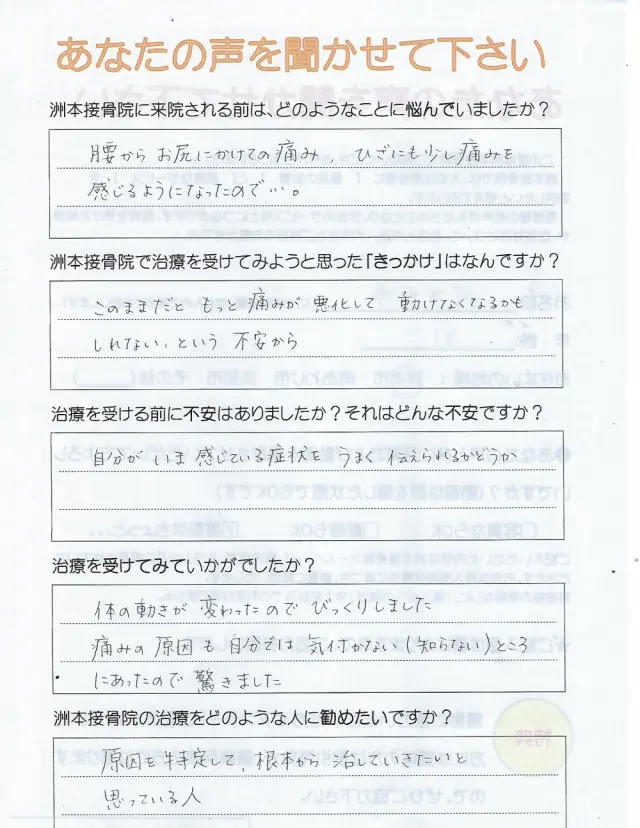 あなたの声を聞かせて下さい
洲本接骨院に来院される前は、どのようなことに悩んでいましたか?
腰から お尻にかけての痛み、ひざにも少し痛みを
感じるようになったので…。
洲本接骨院で治療を受けてみようと思った「きっかけ」はなんですか?
このままだと もっと痛みが 悪化して 動けなくなるかも
しれない、という 不安から
治療を受ける前に不安はありましたか?それはどんな不安ですか?
自分が いま 感じている症状を うまく 伝えられるかどうか
治療を受けてみていかがでしたか?
体の動きが 変わったので びっくりしました
痛みの 原因も 自分では 気付かない(知らない)ところ
にあったので 驚きました
洲本接骨院の治療をどのような人に勧めたいですか?
原因を特定して、根本から 治していきたいと
思っている人